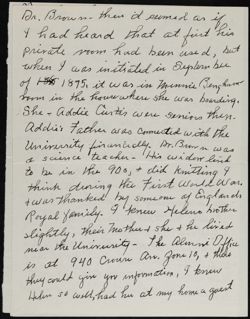 Dr. Brown - then it seemed as if
I had heard that at first his
private room had been used, but
when I was initiated in September
of 1875 it was in Minnie
room in the house where she was boarding.
She & Addie Curtis were Seniors then.
Addie's Father was connected with the
University financially. Dr. Brown was
a science teacher - His widow lived
to be in the 90s, & did knitting I
think during the First World War,
& was thanked by someone of England's
Royal family. I knew Helen's brother
slightly, their Mother & she & he lived
near the University - The Alumni Office
is at 940 Crown Av. Zone 10, & there
they could give you information, I knew
Helen so well, had her at my home a guest